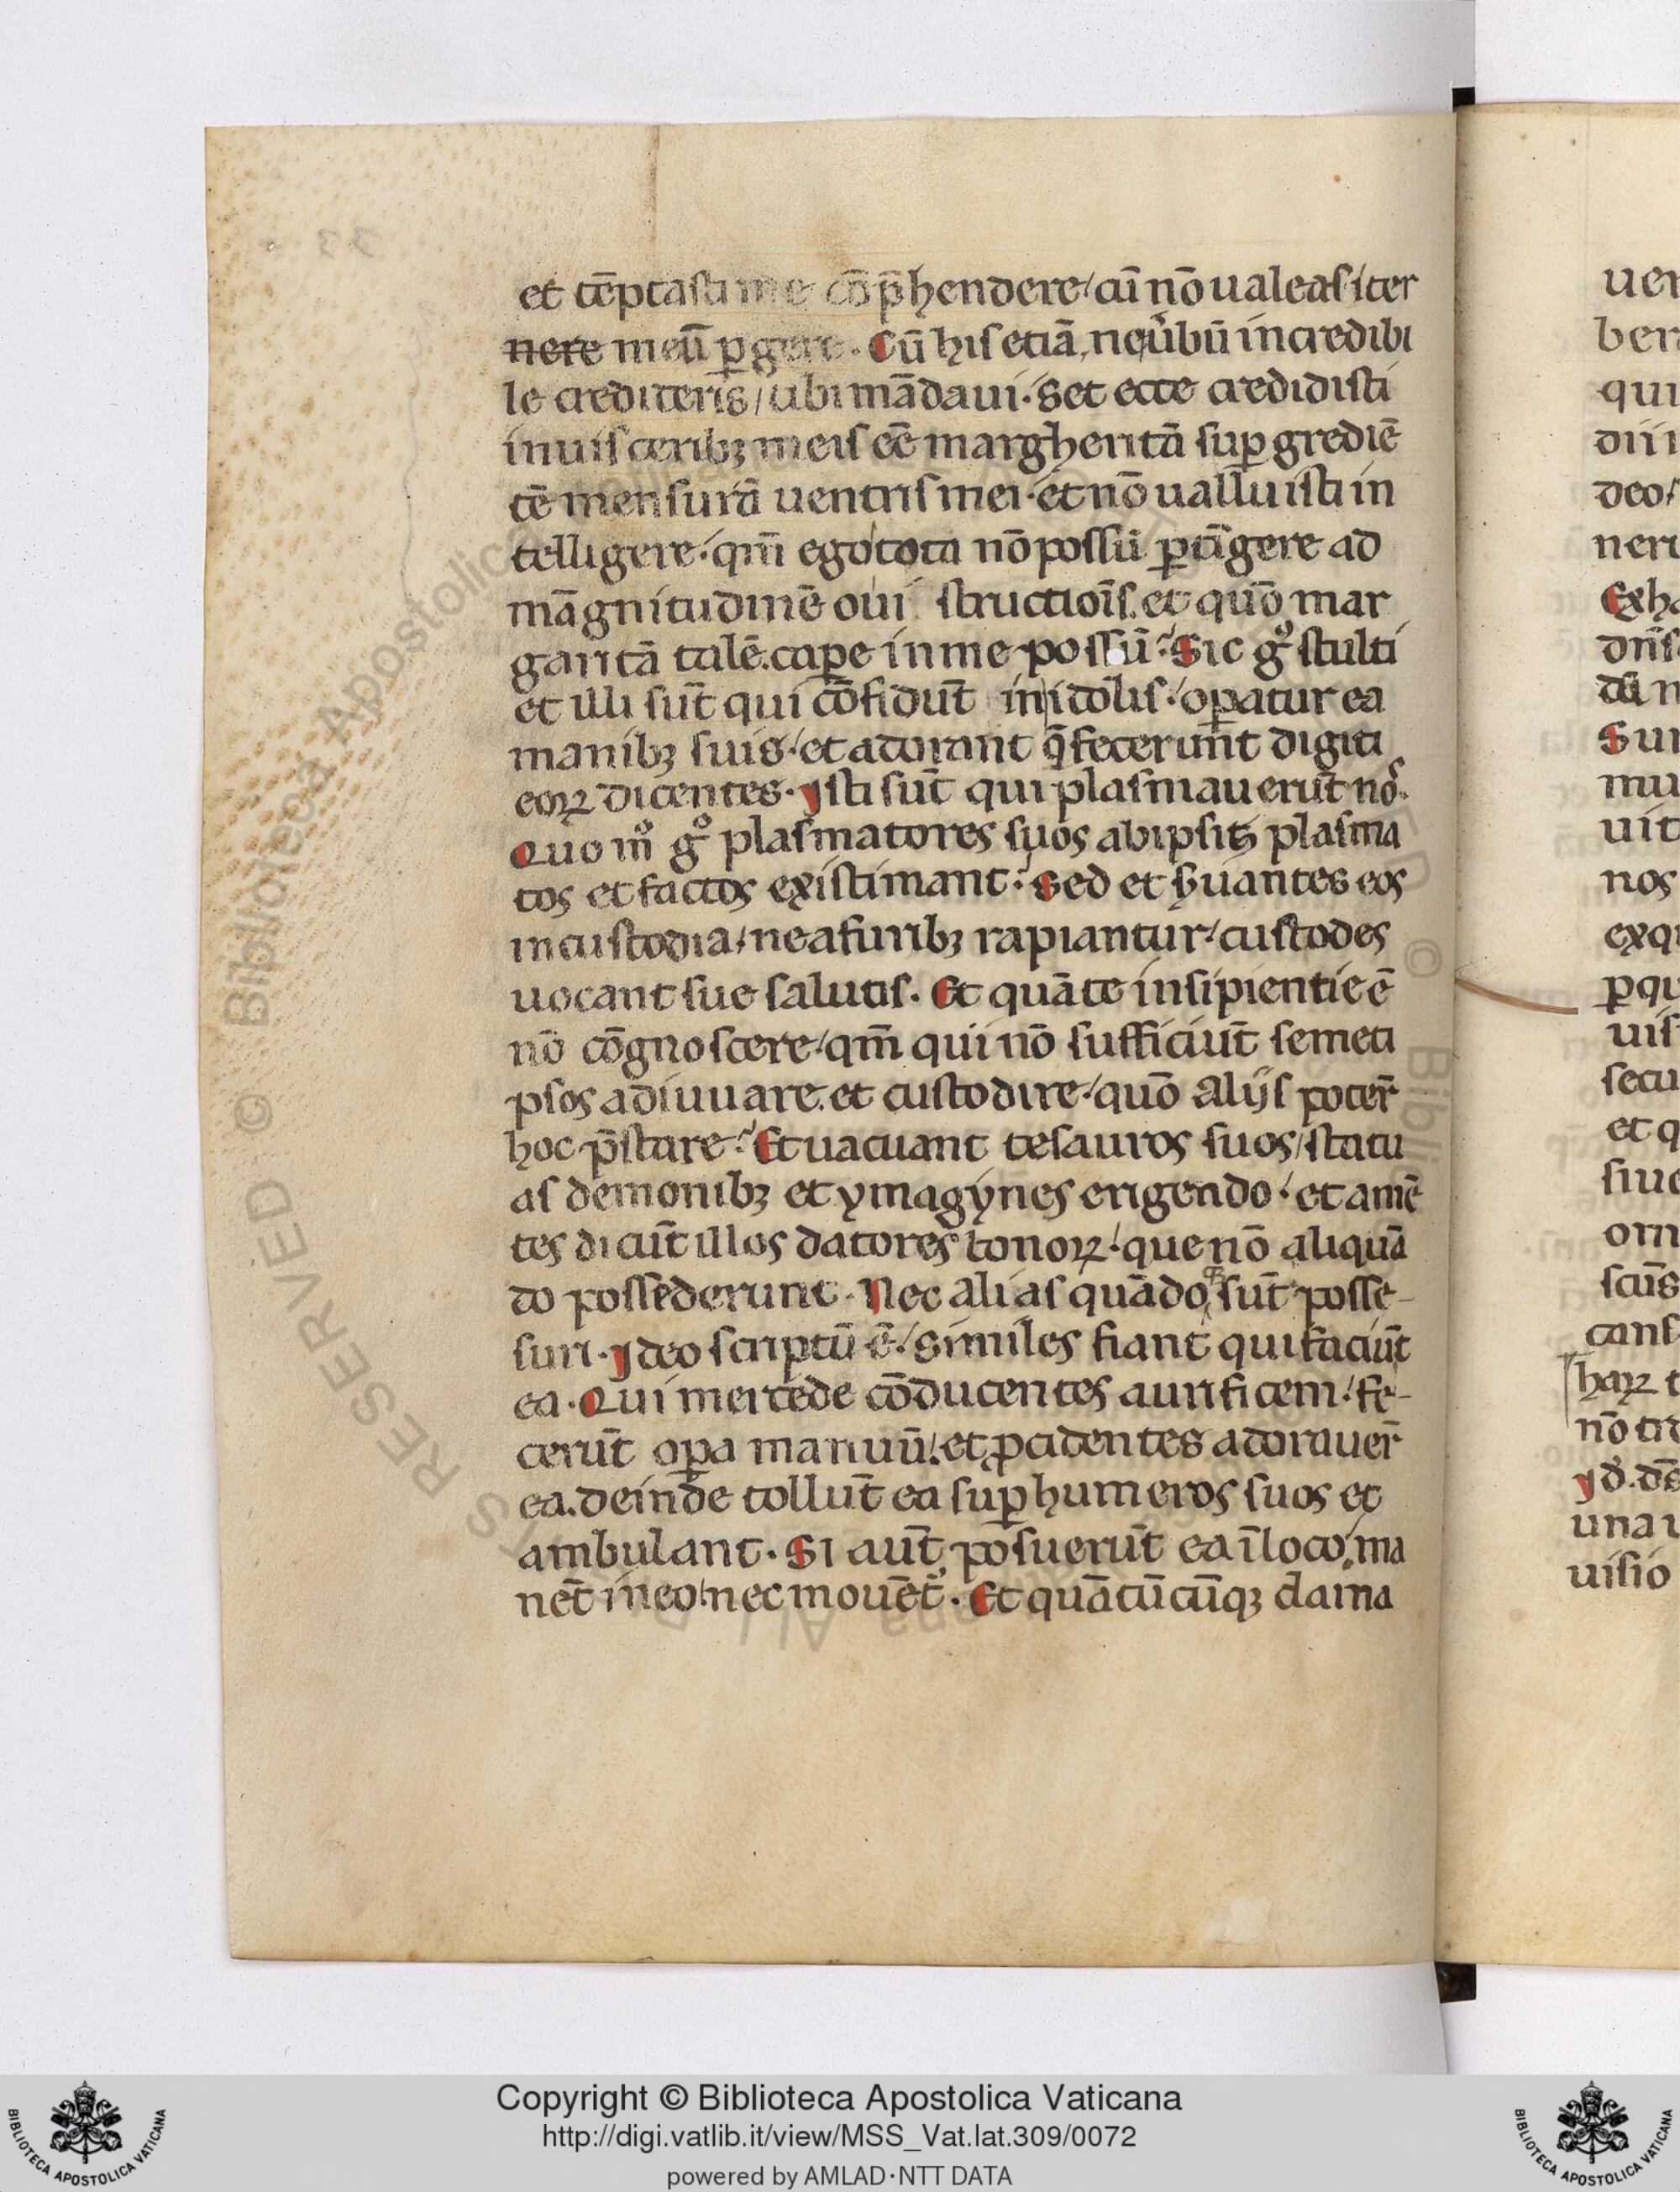 et tēptasti me cōp̄hendere/ cū nō ualeas iter
nere meū ꝑgere. Cū his etiā, neq̇ bū incredibi
le credideris/ ubi mādaui. Set ecce credidisti
in uisceribꝫ meis eē margheritā suꝑ grediē
tē mensurā uentris mei. et nō ualluisti in
telligere. qm̄ ego tota nō possū ꝑtīgere ad
māgnitudinē oui structiōis. et quō mar
garitā talē. caꝑe in me possū. Sic gͦ stulti
et illi sūt qui cōfidūt in idolis. oꝑatur ea
manibꝫ suis. et adorant q̄ fecerunt digiti
eoꝝ dicentes. Isti sūt qui plasmauerūt noˢ.
Quo mͦ gͦ plasmatores suos ab ipsis plasma
tos et factos existimant. Sed et ẜuantes eos
in custodia/ ne a furibꝫ rapiantur/ custodes
uocant sue salutis. Et quāte insipientie ē
nō cōgnoscere/ qm̄ qui nō sufficiūt semeti
psos adiuuare. et custodire/ quō alijs poter̄
hoc p̄stare. Et uacuant tesauros suos/ statu
as demonibꝫ et ymagynes erigendo. et amē
tes dicūt illos datores bonoꝝ. que nō aliquā
do possederunt. Nec alias quādo sūt posse-
suri. Ideo scriptū ē. Similes fiant qui faciūt
ea. Qui mercede cōducentes aurificem. fe-
cerūt oꝑa manuū. et ꝓcidentes adorauer̄
ea. deinde tollūt ea suꝑ humeros suos et
ambulant. Si aut̄ posuerūt ea ī loco. ma
nēt in eo/ nec mouēt᷑. Et quātūcūqꝫ dama
Copyright © Biblioteca Apostolica Vaticana
http://digi.vatlib.it/view/MSS_Vat.lat.309/0072
powered by AMLAD·NTT DATA
BIBLIOTECA APOSTOLICA VATICANA
BIBLIOTECA APOSTOLICA VATICANA